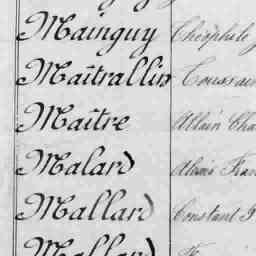 Mainguy Théophile
Maîtrallin Toussain
Maître Allain Cha
Malard Alexis Fran
Mallard Constant F
Mallard